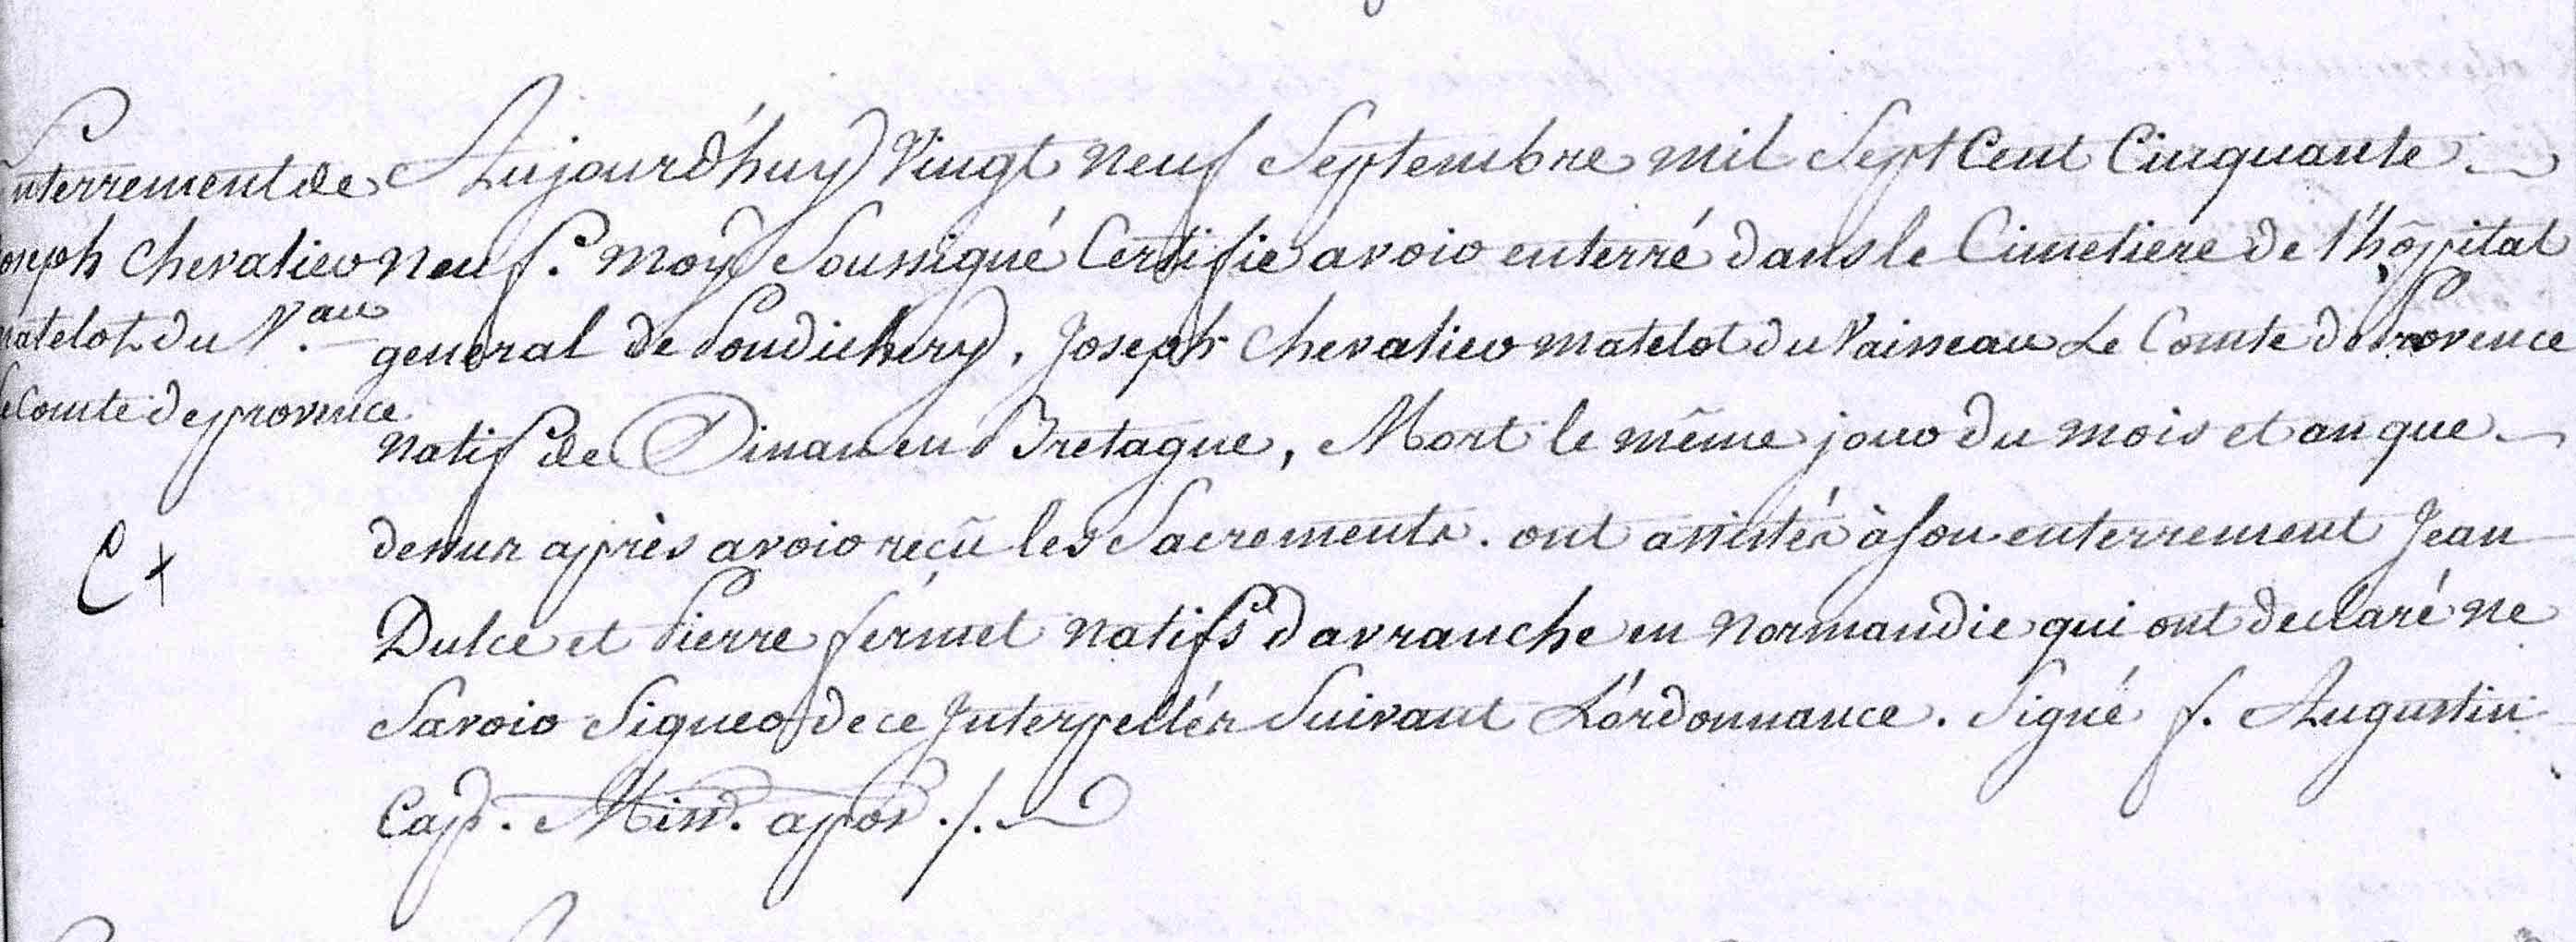 Enterrement de
Joseph Chevalier
matelot du V.au
le Comte de provence
C +
Aujourd'huy Vingt neuf Septembre mil Sept Cent Cinquante
neuf. moy Soussigné Certifie avoir enterré dans le Cimetiere de l'hôpital
general de Pondichery, Joseph Chevalier matelot du Vaisseau Le Comte de Provence
natif de Dinan en Bretagne, Mort le même jour du mois et an que
dessur après avoir reçû les Sacrements. ont assistés à son enterrement Jean
Dulce et Pierre fermet natifs d'avranche en Normandie qui ont declaré ne
Savoir Signer de ce Interpellés Suivant L'ordonnance. Signé f. Augustin
Cap. Miss. apos. /.